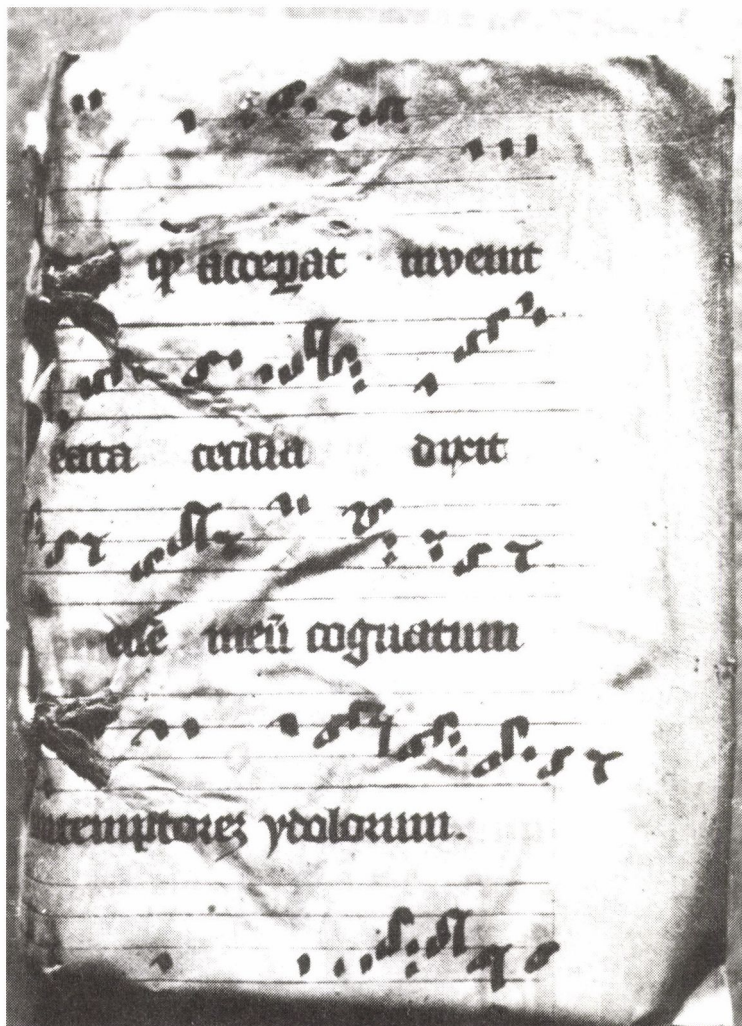 q̄ acceꝑat invenit
eata cecilia dixit
eē̄ meū cognatum
ntemptorez ydolorum.